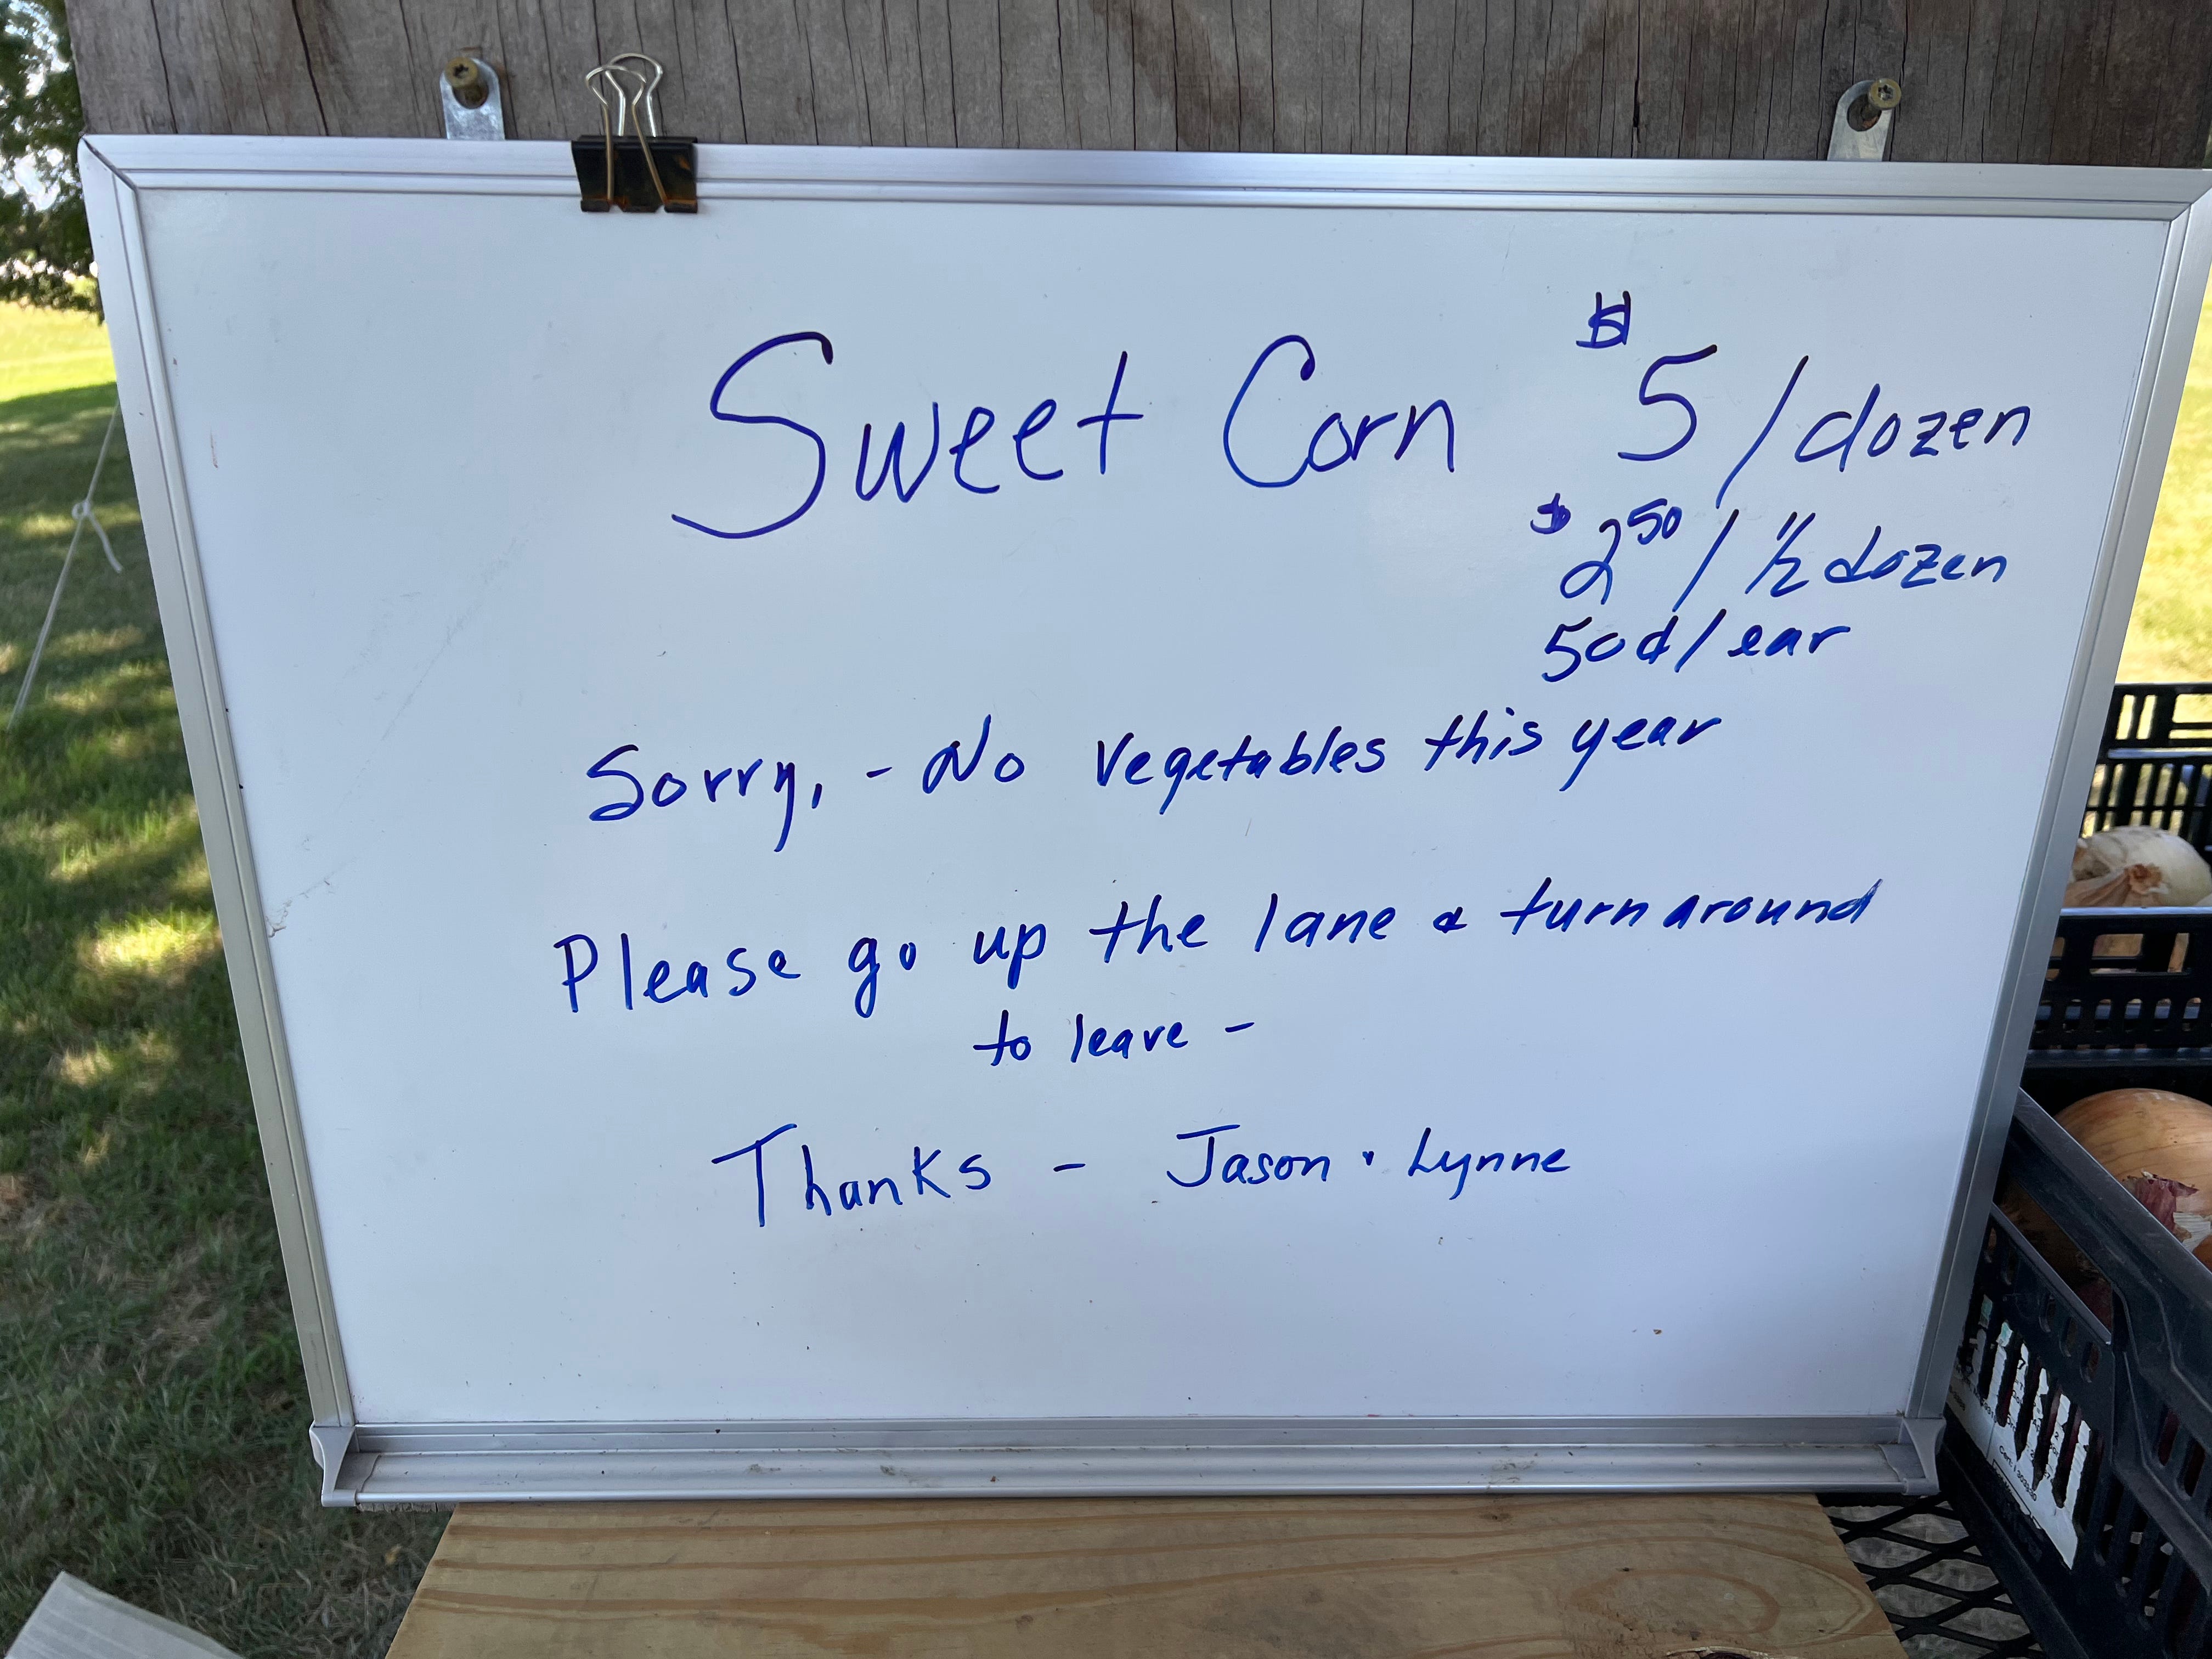 Sweet Corn $5/dozen
$2.50/½ dozen
50¢/ear
Sorry, - No Vegetables this year
Please go up the lane & turn around
to leave -
Thanks - Jason & Lynne